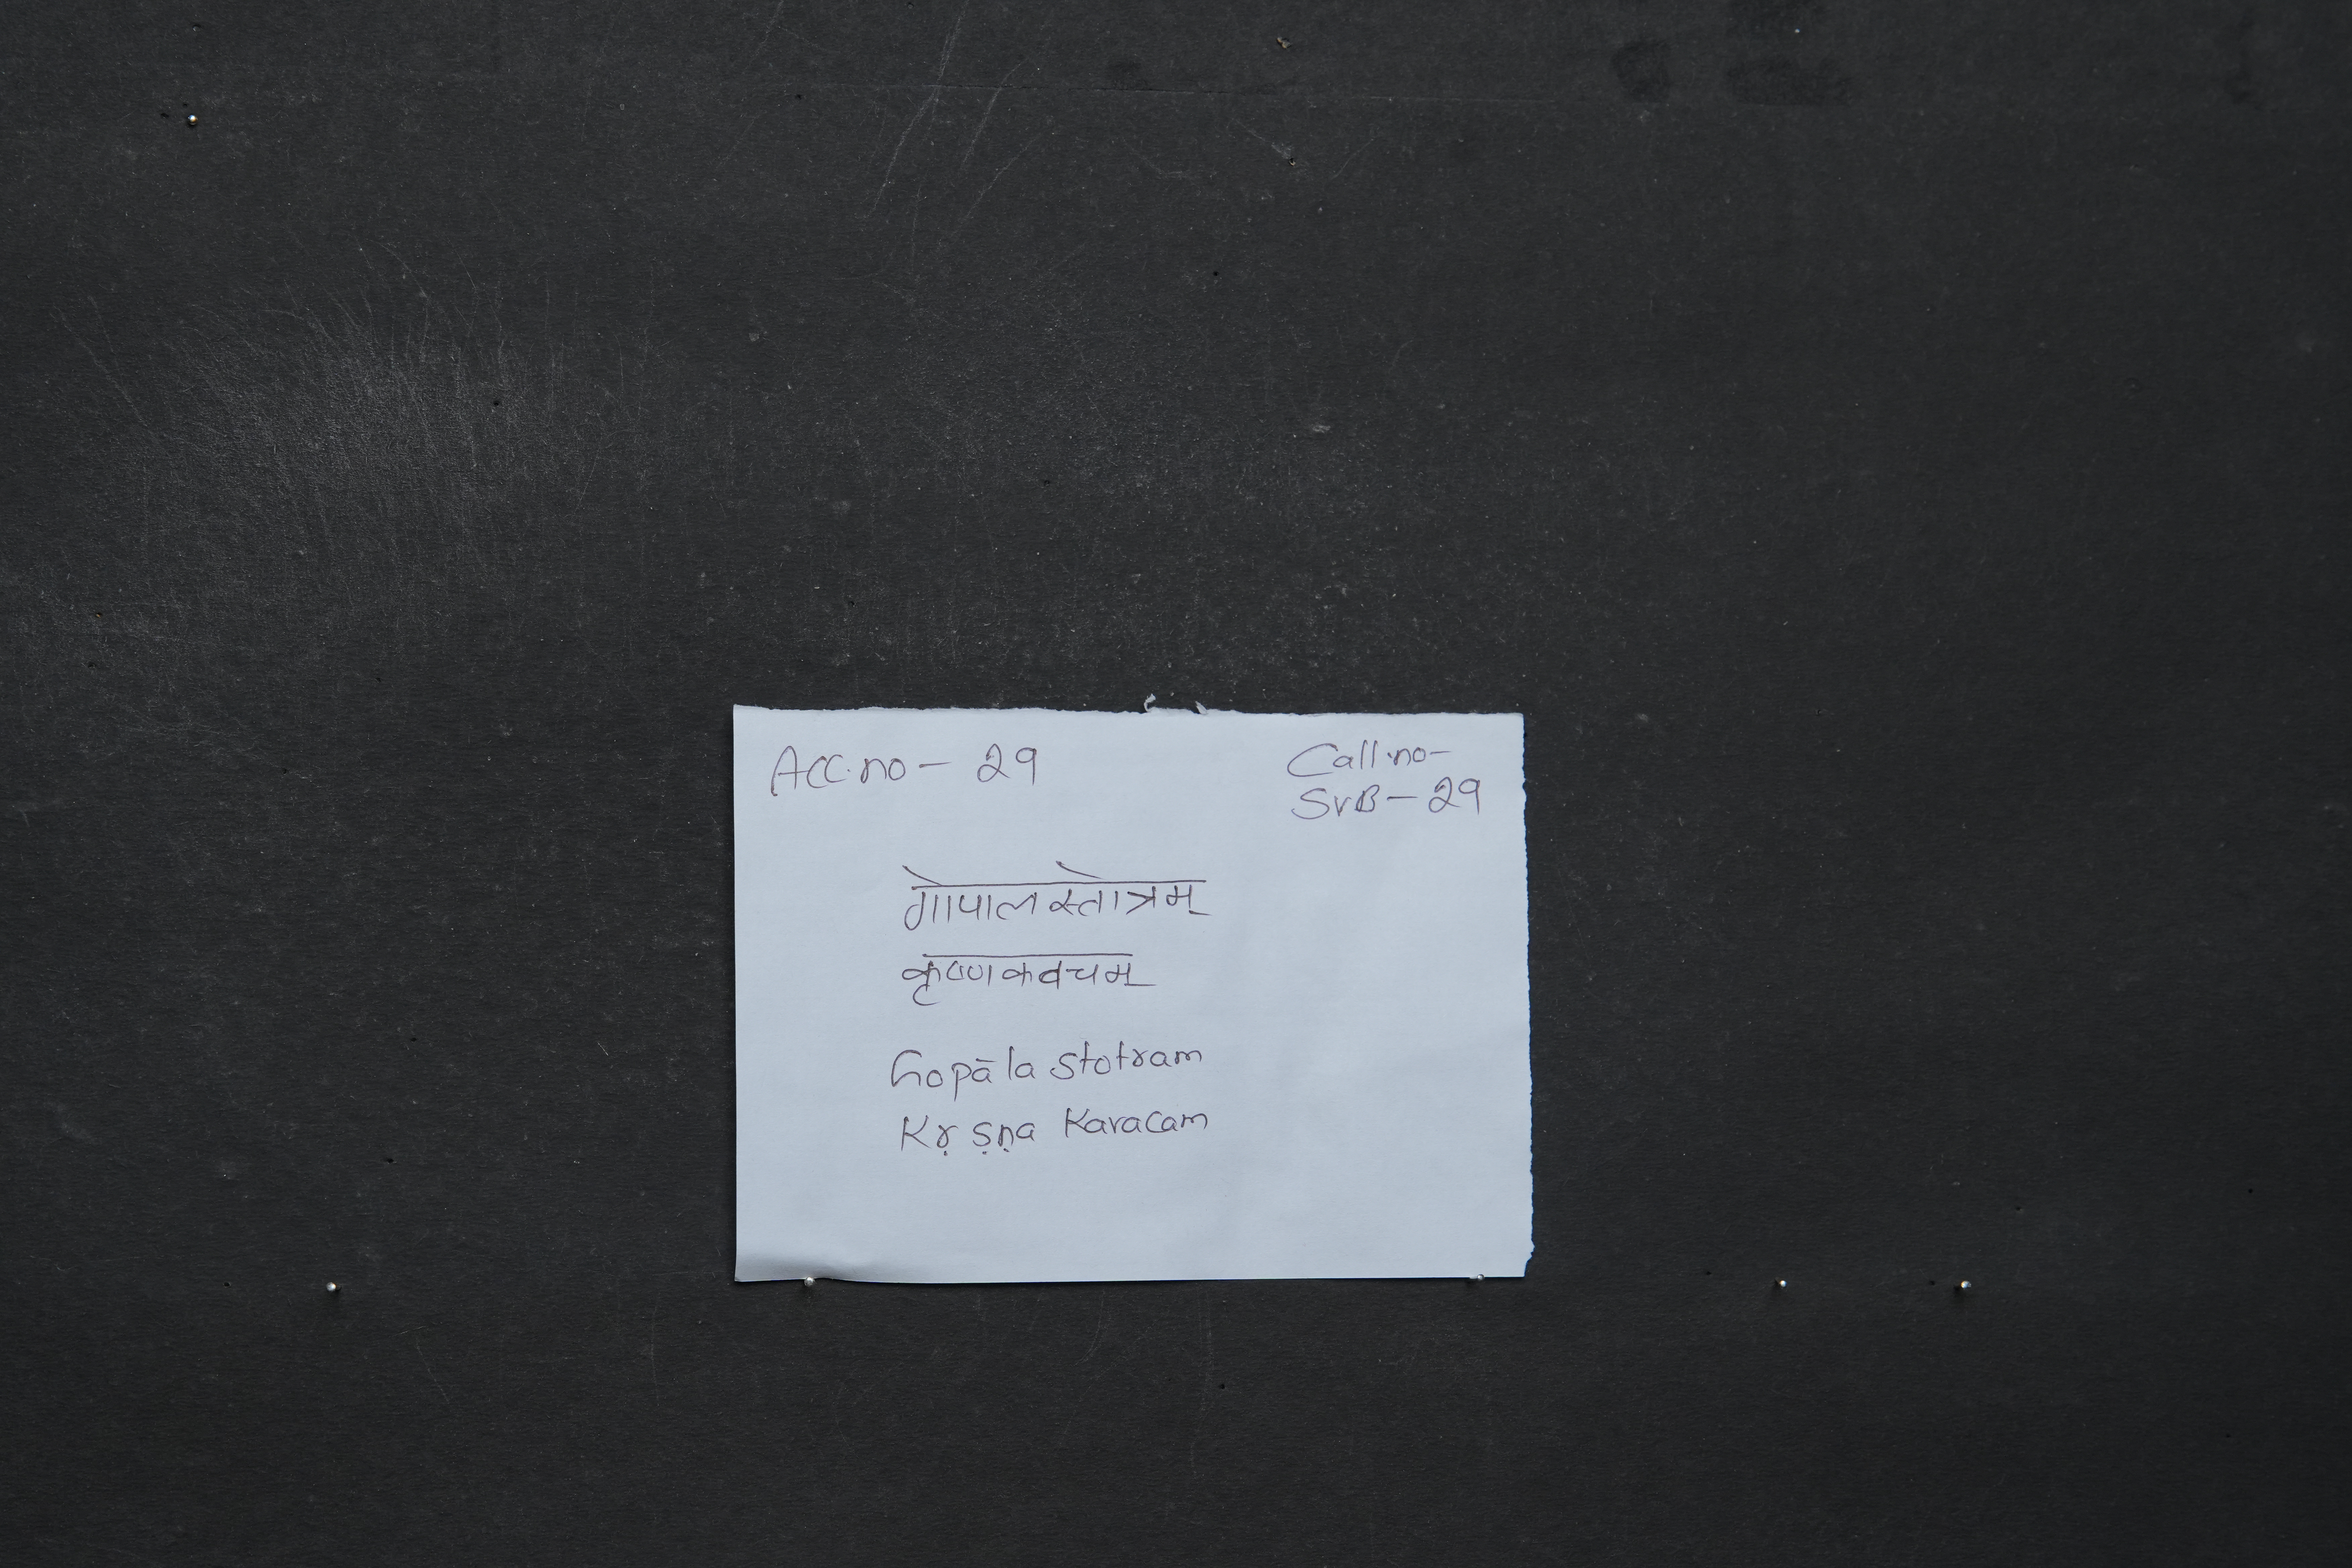 Acc.no - 29
Call.no-
SVB - 29
गोपाल स्तोत्रम्
कृष्ण कवचम्
Gopāla stotram
Kṛṣṇa Kavacam